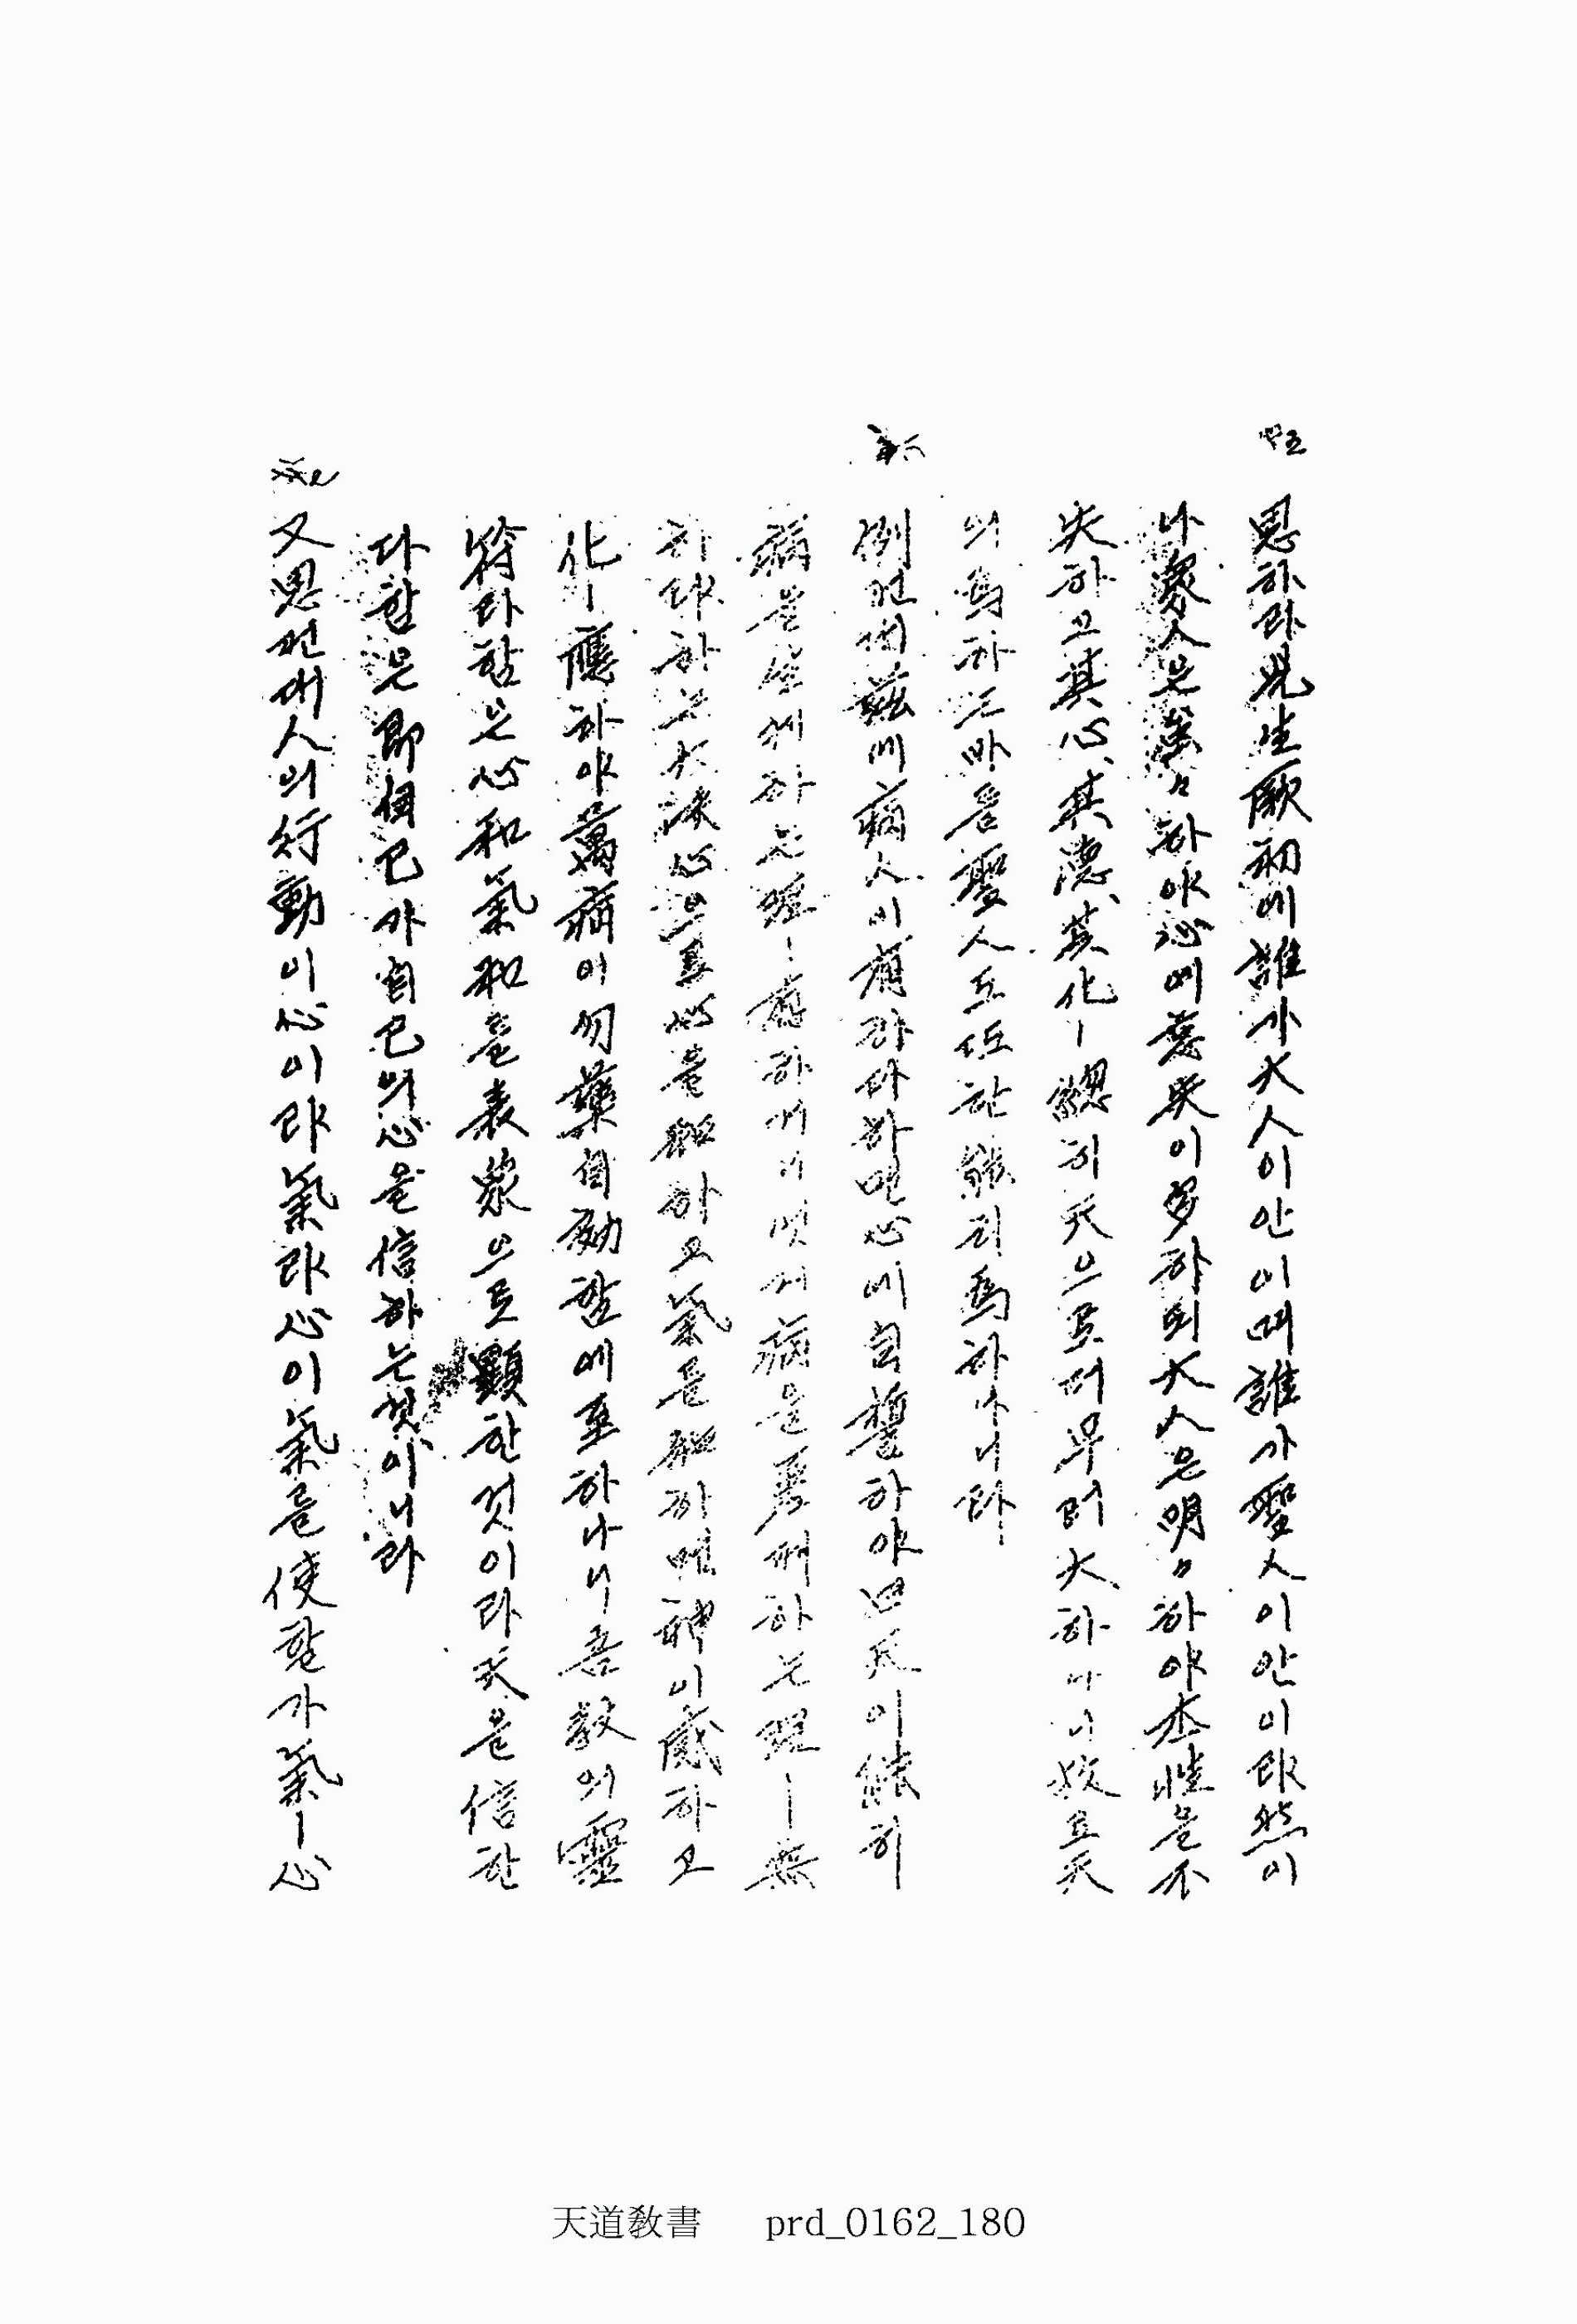 思하라 兒生厥初에 誰가 大人이 안이며 誰가 聖人이 안이랴 然이
나 衆人은 蚩々하야 心에 忘失이 多하되 大人은 明々하야 本性을 不
失하고 其心、其德、其化ㅣ 總히 天으로 더부러 大하나니 故로 天
의 爲하는 바를 聖人도 또한 能히 爲하나니라
例컨대 玆에 病人이 有하다 하면 心에 自誓하야 曰 天이 能히
病을 生케 하는 理ㅣ 有하거니 엇지 病을 差케 하는 理ㅣ 無
하랴 하는 大決心으로 心을 和하고 氣를 和하면 神이 感하고
化ㅣ 應하야 萬病이 勿藥自効함에 至하나니 吾敎의 靈
符라 함은 心和氣和를 表象으로 顯한 것이라 天을 信한
다 함은 卽 自己가 自己의 心을 信하는 것이니라
又 思컨대 人의 行動이 心이랴 氣랴 心이 氣를 使할가 氣ㅣ 心
天道敎書 prd_0162_180